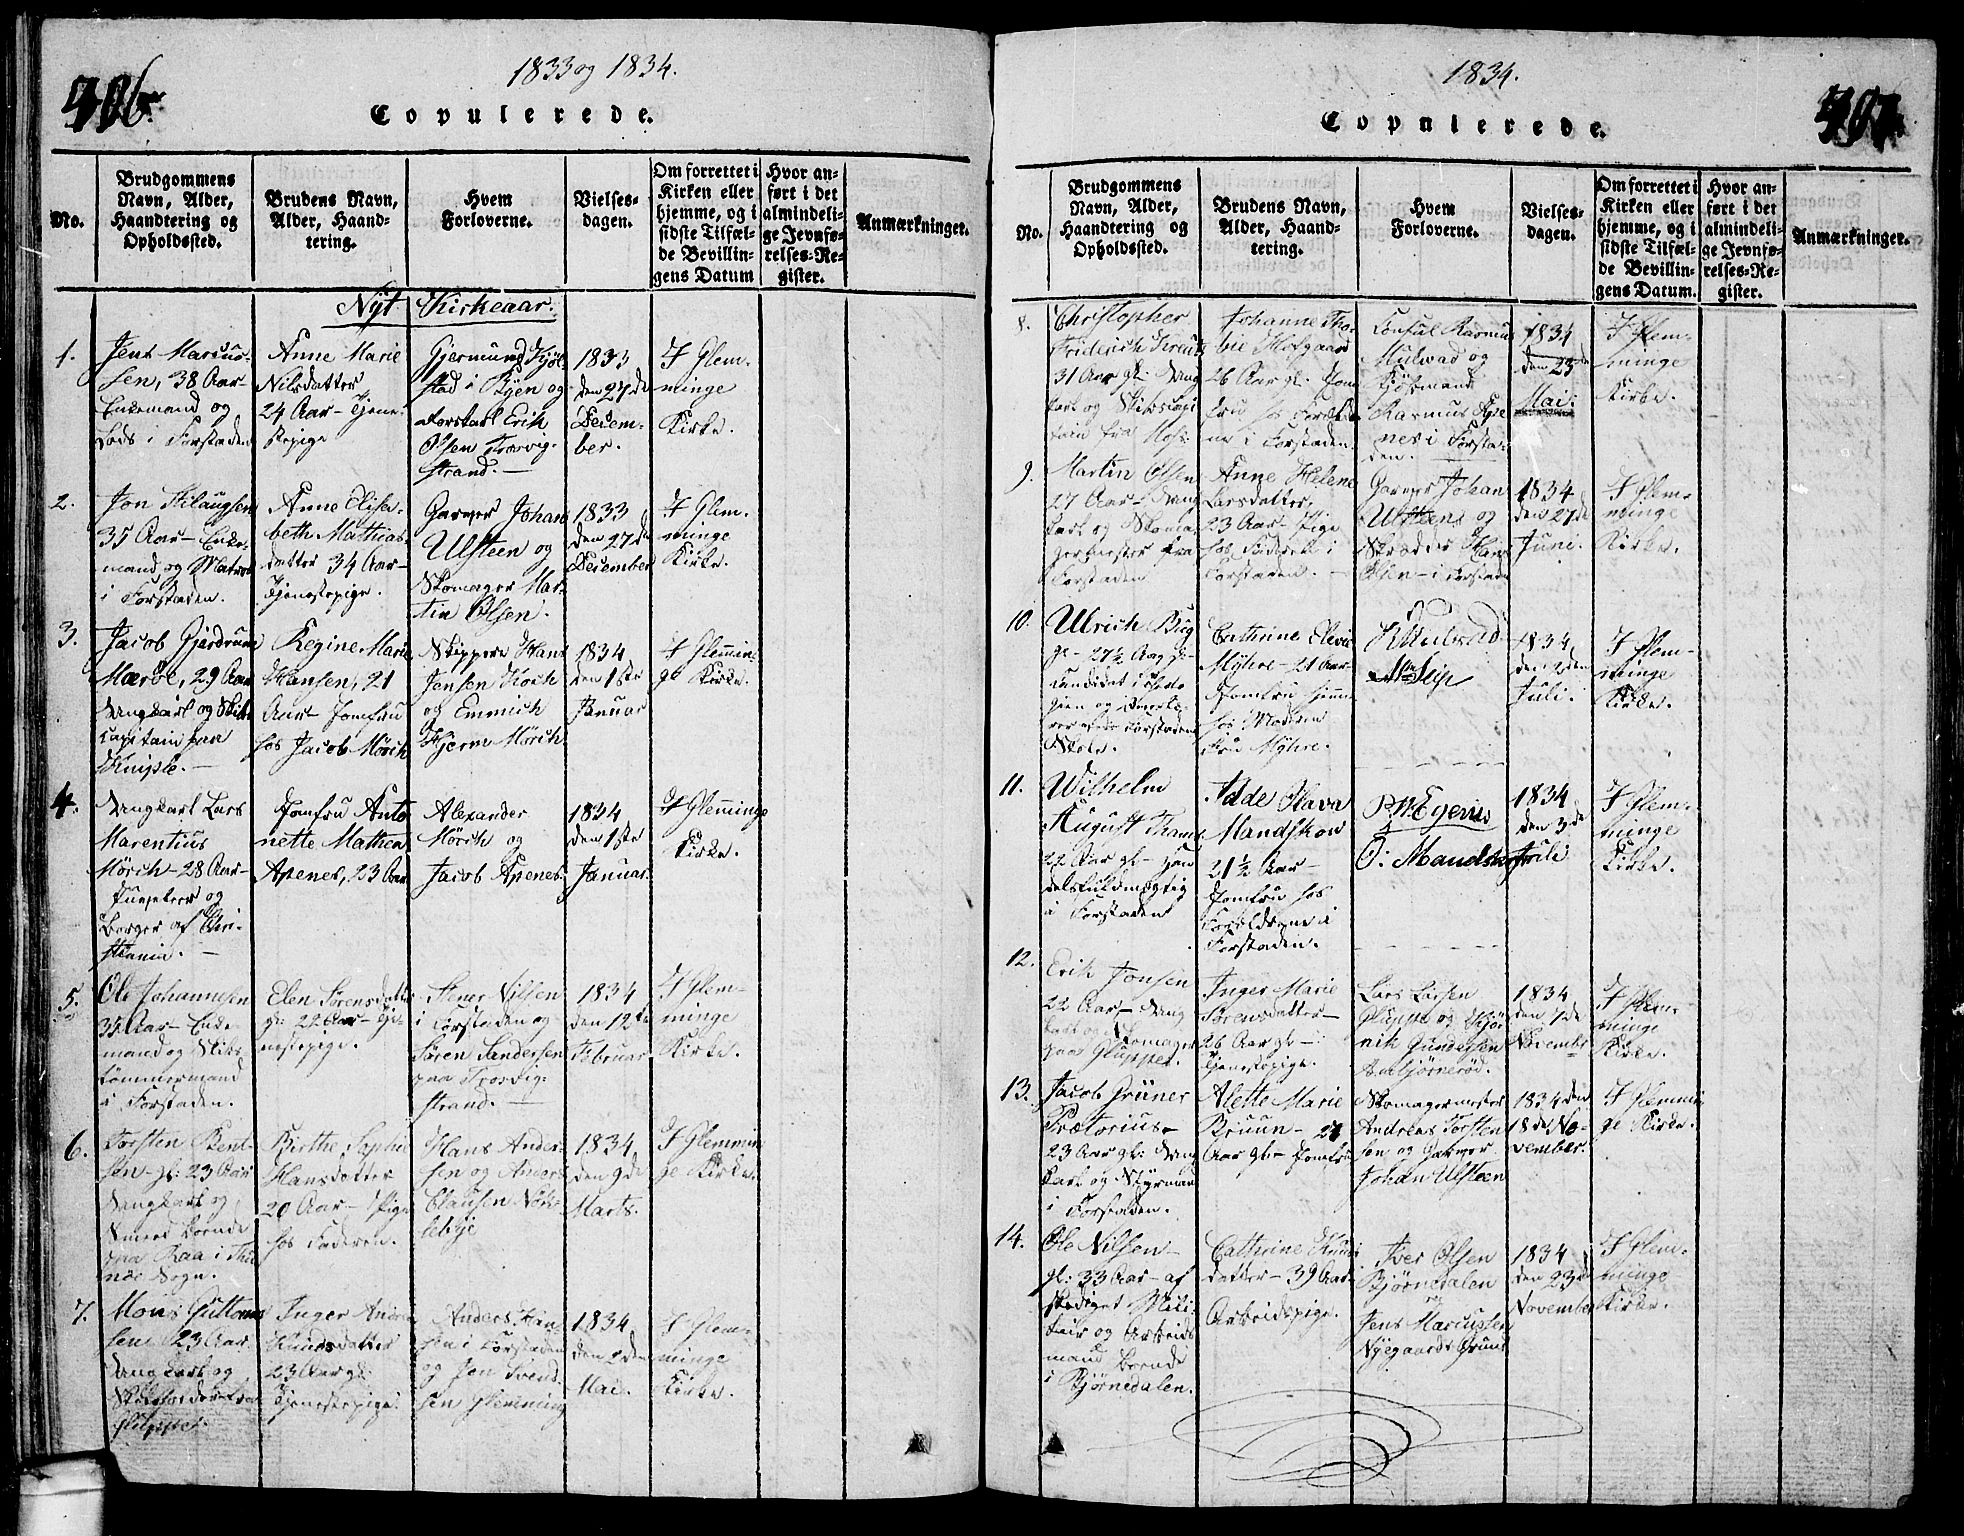 406.
1833 og 1834.
Copulerede.
No.
Brudgommens
Navn, Alder,
Haandtering og
Opholdssted.
Brudens Navn,
Alder, Haand-
tering.
Hvem
Forloverne.
Vielses-
dagen.
Om forrettet i
Kirken eller
hjemme, og i
sidste Tilfæl-
de Bevillin-
gens Datum
Hvor an-
ført i det
almindeli-
ge Jevnfø-
relses-Re-
gister.
Anmærkninger.
Nyt Kirkeaar.
1.
Jens Marcus-
sen, 38 Aar-
Enkemand og
Lods i Forstaden
Anne Marie
Nilsdatter
24 Aar- Tjene-
stepige
Gjermund
stad i Byen og
Erik
Olsen Trosvig-
strand.-
1833
den 27de
Decem-
ber.
I Glem-
minge
Kirke.
2.
Jon
35 Aar- Enke-
mand og Matros
i Forstaden.
Anne Elisa-
beth Mathias-
datter 34 Aar-
Tjenestepige.
Garver Johan
Ulsteen og
Skomager Mar-
tin Olsen.
1833
den 27de
December
I Glem-
minge
Kirke.
3.
Jacob Gjerdrum
29 Aar
Ungkarl og Skibs-
capitain paa
Regine Marie
Hansen, 21
Aar- Jomfru
hos Jacob Mörch
Skippere Hans
Jensen Koch
og Emmich
Hjorm Mörch.
1834
den 1ste
Januar
I Glemmin-
ge Kirke.
4.
Ungkarl Lars
Marentius
Mörch- 28 Aar-
og
Borger af Chri-
stiania.-
Jomfru Anto
nette Mathea
Apenes, 23 Aar
Alexander
Mörch og
Jacob Apenes.
1834
den 1ste
Januar.
I Glemminge
Kirke.
5.
Ole Johannesen
35 Aar- Enke-
mand og Skibs-
tömmermand
i Forstaden.
Elen Sörensdatter
gl: 22 Aar- Tje-
nestepige.
Stener Nilsen
i Forstaden og
Sören Sandersen
paa Trosvig-
strand.-
1834
den 12te
Februar
I Glem-
minge
Kirke.
6.
Torsten Bent-
sen- gl: 23 Aar
Ungkarl og
Smed boende
paa Raa i Thu
nöe Sogn.
Birthe Sophie
Hansdatter
20 Aar- Pige
hos Faderen.
Hans Ander-
sen og Anders
Clausen Nok-
lebye
1834
den 9de
Marts.
I Glemmin
ge Kirke.
7.
Mons Guttorms
sen 23 Aar.
Ungkarl og
Inger Andrea
Knudsdatter
23 Aar gl:
Tjenestepige.
Anders Han-
sen i Forstaden
og Jon Svend-
sen Glemming
1834
den 2den
Mai.
I Glem-
minge
Kirke.
407.
1834.
Copulerede.
No.
Brudgommens
Navn, Alder,
Haandtering og
Opholdssted.
Brudens Navn,
Alder, Haand-
tering.
Hvem
Forloverne.
Vielses-
dagen.
Om forrettet i
Kirken eller
hjemme, og i
sidste Tilfæl-
de Bevillin-
gens Datum.
Hvor an-
ført i det
almindeli-
ge Jevnfø-
relses-Re-
gister.
Anmærkninger.
8.
Christopher
Friderich Kreutz
31 Aar gl: Ung
karl og Skibscapi
tain fra Moss.
Johanne Tho-
bie Hofgaard
26 Aar gl. Jom
fru hos Foræld
ne i Forstaden
Consul Rasmus
Mulwad og
Kjöbmand
Rasmus
nes i Forsta-
den.
1834
den 23de
Mai.
I Glem-
minge
Kirke.
9.
Martin Olsen
27 Aar- Ung
karl og Skoma-
germester fra
Forstaden
Anne Helene
Larsdatter,
23 Aar- Pige
hos Faderen i
Forstaden.
Garver Johan
Ulsteen og
Skræder Hans
Olsen- i Forstaden
1834
den 27de
Juni.
I Glem-
minge
Kirke.
10.
Ulrich Bug
ge- 27½ Aar gl-
Candidat i Theolo
gien og Overlæ-
rer ved Forstadens
Skole.
Cathrine Elevine
Myhre- 21 Aar-
Jomfru hjemme
hos Moderen
Fru Myhre.
RMulwad
1834
den 2den
Juli.
I Glem-
minge
Kirke.
11.
Wilhelm
August Thams
22 Aar gl- Han
delsfuldmægtig
i Forstaden
Adde Olava
Mandskow
21½ Aar-
Jomfru hos
Forældrene i
Forstaden.
O: Mandskow
1834
den 3de
Juli
I Glem-
minge
Kirke.
12.
Erik Jonsen
22 Aar- Ung
karl og Skomager
paa Gluppe.
Inger Marie
Sörensdatter-
26 Aar gl-
Tjenestepige.
Lars Larsen
Gluppe og
Gundersen
1834
den 7de
November
I Glem-
minge
Kirke.
13.
Jacob Grüner
Prætorius-
23 Aar gl: Ung
karl og Styrmand
i Forstaden.
Alette Marie
Bruun- 21
Aar gl- Jomfru
Skomagermester
Andreas Torsten
sen og Garver
Johan Ulsteen
1834 den
18de No-
vember.
I Glemmin
ge Kirke.
14.
Ole Nilsen-
gl: 33 Aar- af
skediget Mili-
tair og Arbeids
mand boende
i Bjørnedalen.
Cathrine Knuds
datter- 39 Aar.
Arbeidspige.
Iver Olsen
Bjørnedalen
og
Jens Marcussen
Nyegaards Gruns
1834
den 23de
November
I Glem-
minge
Kirke.